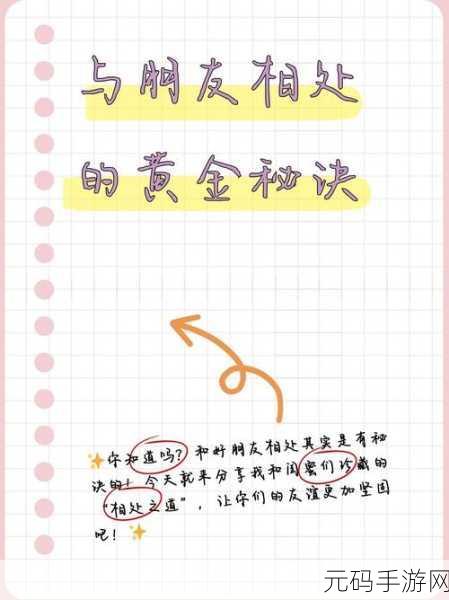 与朋友相处
的黄金秘诀
你知道吗？和好朋友相处其实是有秘
诀的！今天就来分享我和闺蜜们珍藏的
“相处之道”，让你们的友谊更加坚固
吧！
元码手游网